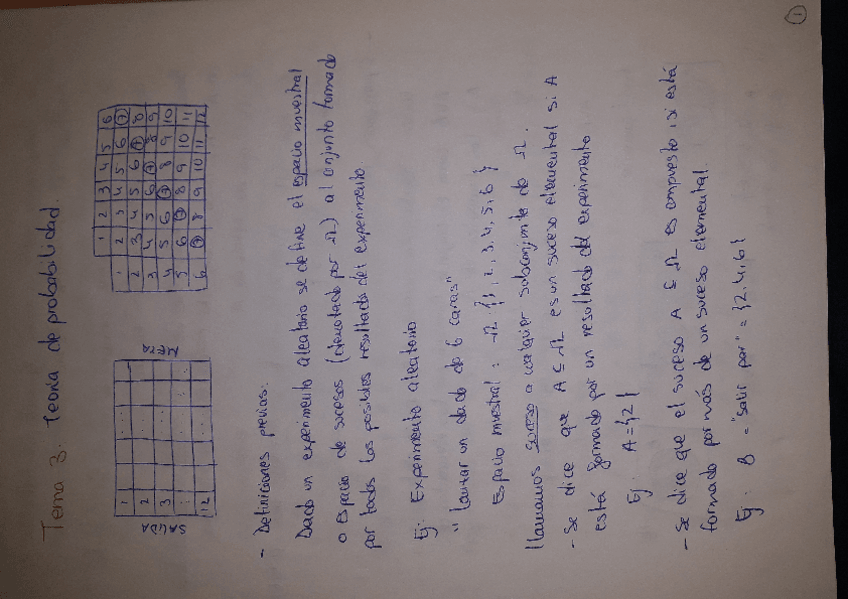 1
Tema 3. Teoría de probabilidad.
SALIDA META
1
2
3
:
12
1 2 3 4 5 6
1 2 3 4 5 6 7
2 3 4 5 6 7 8
3 4 5 6 7 8 9
4 5 6 7 8 9 10
5 6 7 8 9 10 11
6 7 8 9 10 11 12
- Definiciones previas:
Dado un experimento aleatorio se define el espacio muestral
o espacio de sucesos (denotado por Ω) al conjunto formado
por todos los posibles resultados del experimento.
Ej: Experimento aleatorio
"Lanzar un dado de 6 caras"
Espacio muestral: Ω {1, 2, 3, 4, 5, 6}
Llamamos suceso a cualquier subconjunto de Ω.
- Se dice que A ⊆ Ω es un suceso elemental si A
está formado por un resultado del experimento
Ej: A = {2}
- Se dice que el suceso A ⊆ Ω es compuesto si está
formado por más de un suceso elemental.
Ej: B = "salir par" = {2, 4, 6}